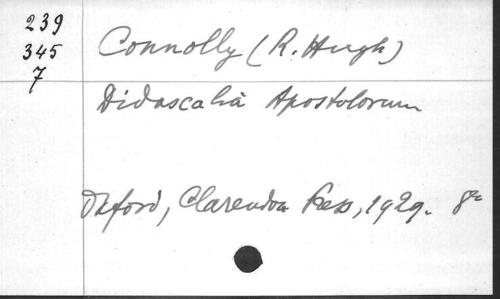 239
345
7
Connolly (R. Hugh)
Didascalia Apostolorum
Oxford, Clarendon Press, 1929. 8°